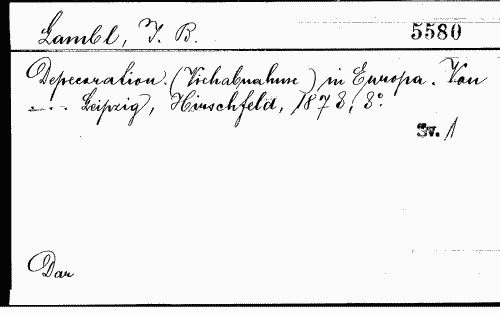 Lambl, J. B. 5580
Depecoration. (Viehabnahme) in Europa. Von
--- Leipzig, Hirschfeld, 1878, 8°.
Sv. 1
Dar